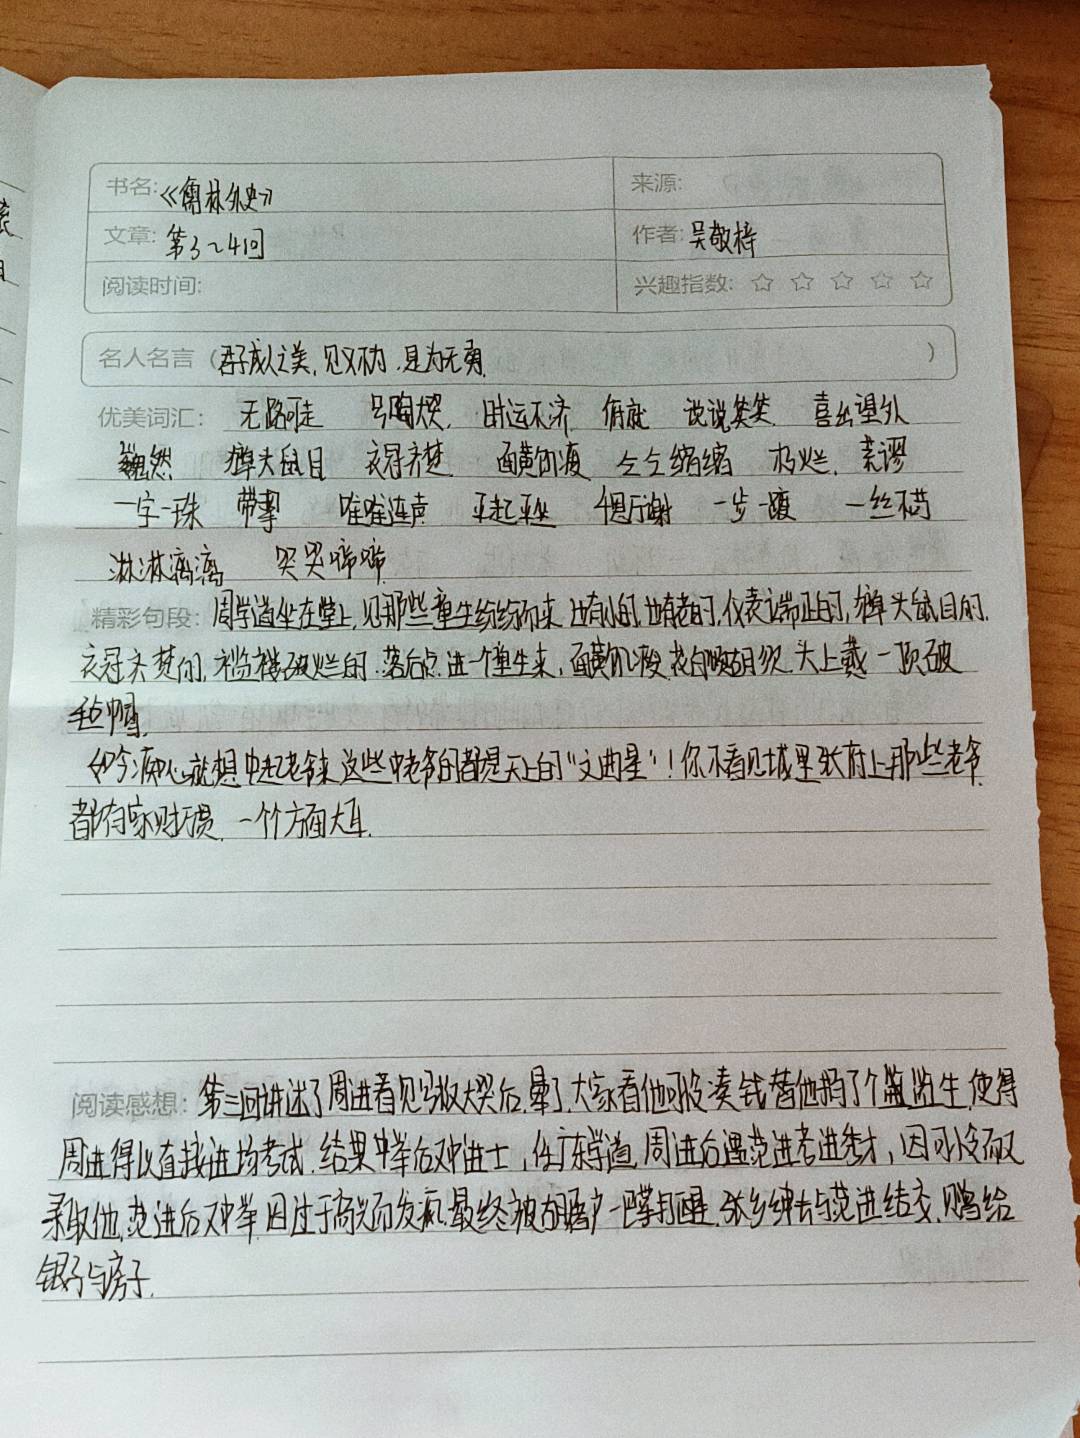 书名:《儒林外史》 来源:
文章: 第3～4回 作者: 吴敬梓
阅读时间: 兴趣指数: ☆ ☆ ☆ ☆ ☆
名人名言 (君子成人之美, 见义不为, 是为无勇. )
优美词汇: 无路可走 号啕大哭. 时运不济 俯就 说说笑笑 喜出望外
巍然 獐头鼠目 衣冠齐楚 面黄肌瘦 仝仝缩缩 朽烂. 荒谬
一字一珠 带挈 哇哇连声 平起平坐 一步一踱 一丝不苟
淋淋漓漓 哭哭啼啼.
精彩句段: 周学道坐在堂上, 见那些童生纷纷而来. 也有小的, 也有老的, 仪表端正的, 獐头鼠目的.
衣冠齐楚的, 褴褛破烂的. 落后点进一个童生来, 面黄肌瘦, 花白胡须. 头上戴一顶破
毡帽.
如今痴心就想中起老爷来. 这些中老爷的都是天上的“文曲星”! 你不看见城里张府上那些老爷.
都有家财万贯. 一个个方面大耳.
阅读感想: 第三回讲述了周进看见号板大哭后, 晕了. 大家看他可怜凑钱替他捐了个监生, 使得
周进得以直接进场考试. 结果中举后又中进士, 任广东学道. 周进后遇范进考进秀才, 因可怜而又
录取他, 范进后又中举, 因过于高兴而发疯. 最终被胡屠户一巴掌打醒. 张乡绅去与范进结交, 赠给
银子与房子.